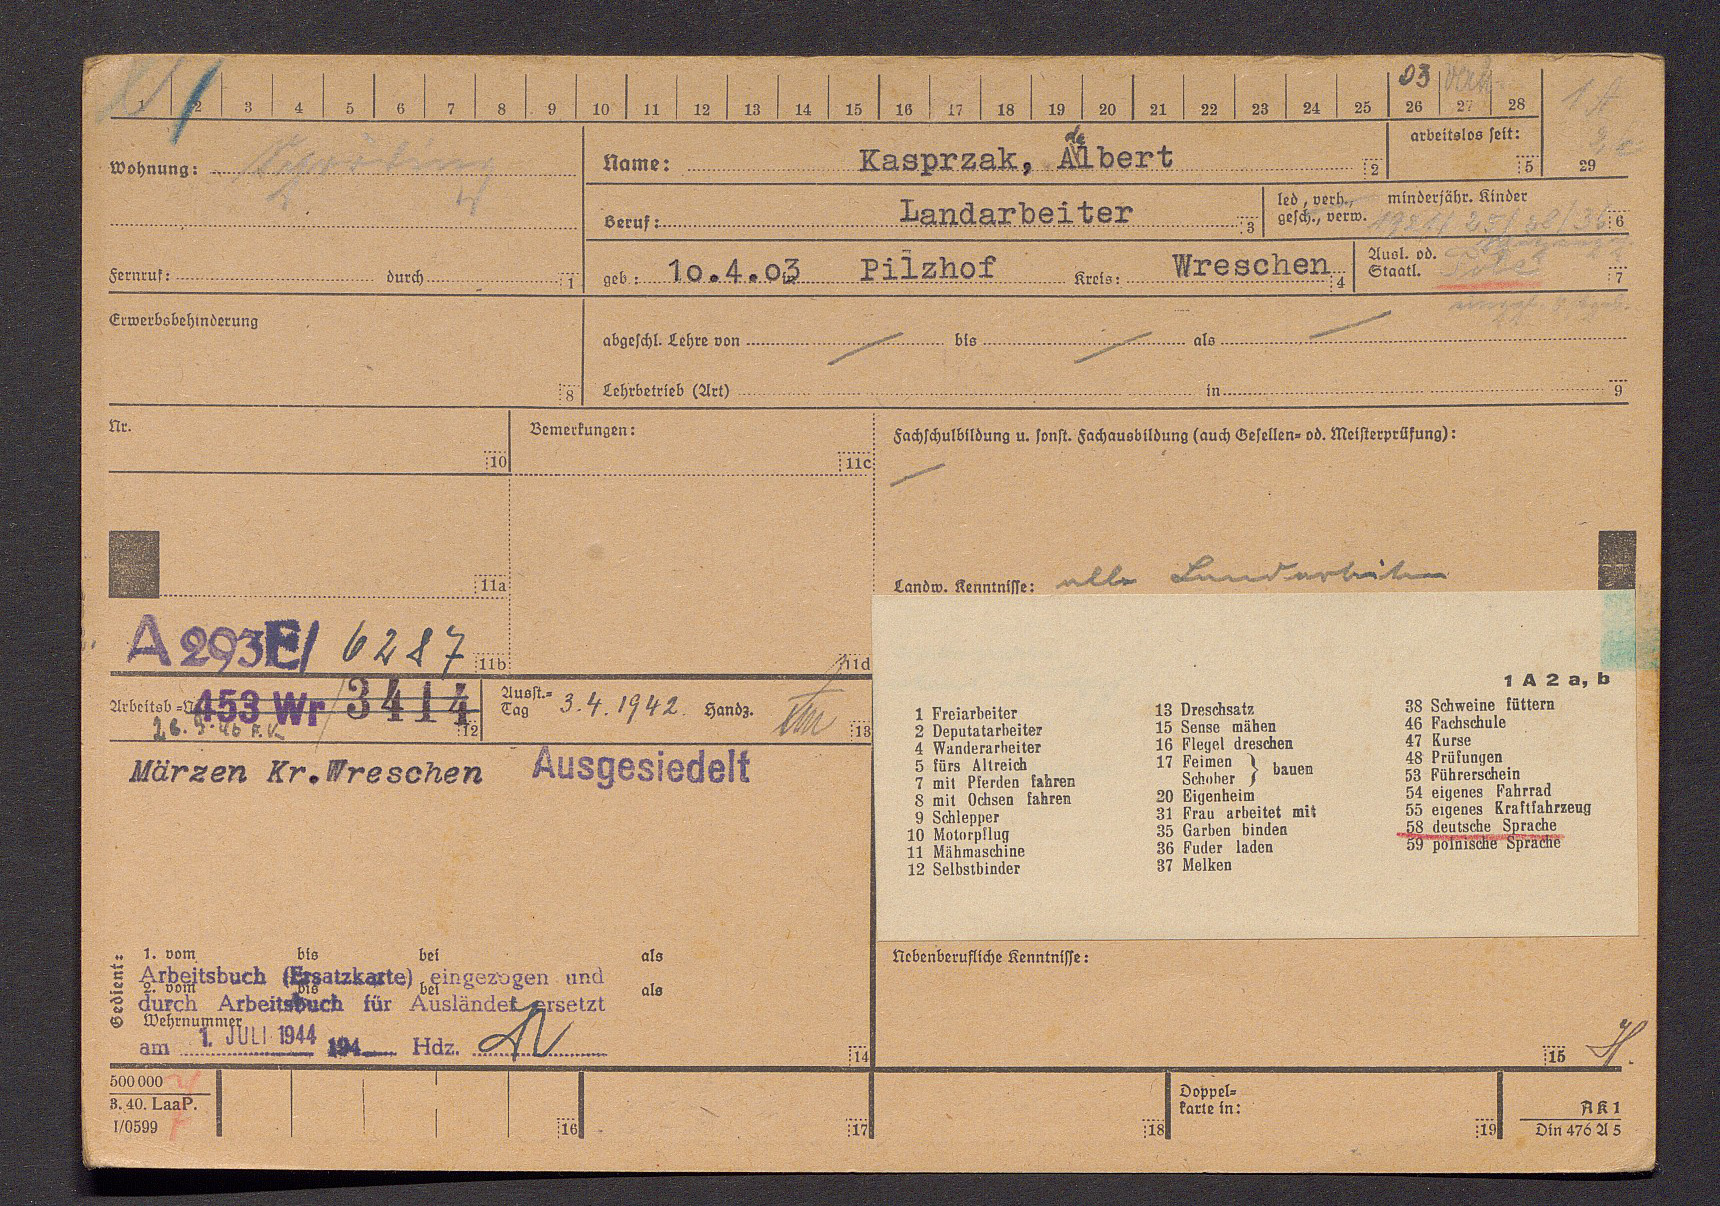 03 verh.
1 2 3 4 5 6 7 8 9 10 11 12 13 14 15 16 17 18 19 20 21 22 23 24 25 26 27 28
29
Wohnung:
Name: Kasprzak, Adalbert 2
arbeitslos seit: 5
Beruf: Landarbeiter 3
led., verh., gesch., verw.
minderjähr. Kinder 6
Fernruf: durch 1
geb: 10.4.03 in Pilzhof Kreis: Wreschen 4
Ausl. od. Staatl. Pole 7
Erwerbsbehinderung 8
abgeschl. Lehre von bis als
Lehrbetrieb (Art) in 9
Nr. 10
Bemerkungen: 11c
Fachschulbildung u. sonst. Fachausbildung (auch Gesellen- od. Meisterprüfung):
11a
Landw. Kenntnisse: alle Landarbeiten
A 293E/ 6287 11b
11d
Arbeitsb.-Nr. 453 Wr / 3414 12
Ausst.-Tag 3.4.1942 Handz. 13
Märzen Kr.Wreschen Ausgesiedelt
1 A 2 a, b
1 Freiarbeiter
2 Deputatarbeiter
4 Wanderarbeiter
5 fürs Altreich
7 mit Pferden fahren
8 mit Ochsen fahren
9 Schlepper
10 Motorpflug
11 Mähmaschine
12 Selbstbinder
13 Dreschsatz
15 Sense mähen
16 Flegel dreschen
17 Feimen } bauen
Schober
20 Eigenheim
31 Frau arbeitet mit
35 Garben binden
36 Fuder laden
37 Melken
38 Schweine füttern
46 Fachschule
47 Kurse
48 Prüfungen
53 Führerschein
54 eigenes Fahrrad
55 eigenes Kraftfahrzeug
58 deutsche Sprache
59 polnische Sprache
Gedient:
1. vom bis bei als
Arbeitsbuch (Ersatzkarte) eingezogen und
2. vom bis bei als
durch Arbeitsbuch für Ausländer ersetzt
Wehrnummer
am 1. JULI 1944 194 Hdz.
14
Nebenberufliche Kenntnisse:
15
500 000
3. 40. LaaP.
I/0599
16
17
18
Doppelkarte in:
19
AK1
Din 476 A 5